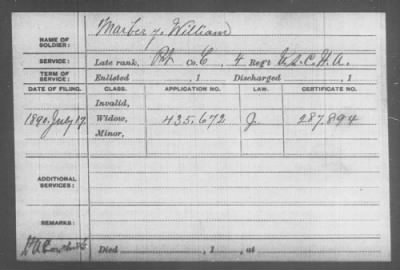 NAME OF SOLDIER: Marbery, William
SERVICE: Late rank, Pvt Co. C, 4 Regt U.S.C.H.A.
TERM OF SERVICE: Enlisted , 1 Discharged , 1
DATE OF FILING. CLASS. APPLICATION NO. LAW. CERTIFICATE NO.
Invalid,
1890, July 17 Widow, 435.672 J. 287.894
Minor,
ADDITIONAL SERVICES:
REMARKS:
Died , 1 , at